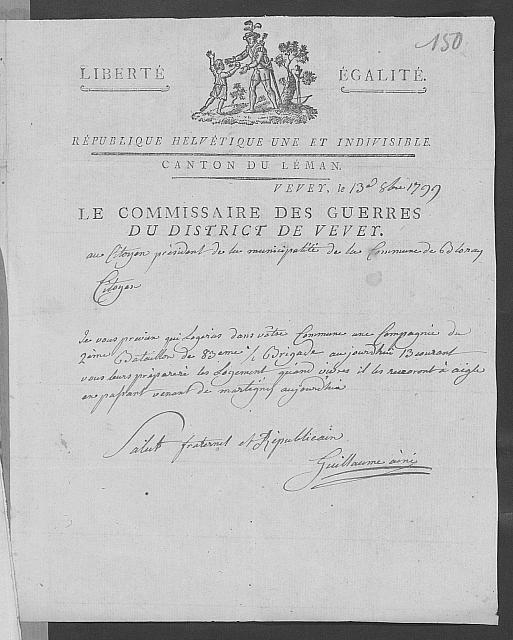 150
LIBERTÉ ÉGALITÉ.
RÉPUBLIQUE HELVÉTIQUE UNE ET INDIVISIBLE.
CANTON DU LÉMAN.
VEVEY, le 13e 8bre 1799
LE COMMISSAIRE DES GUERRES
DU DISTRICT DE VEVEY.
au Citoyen président de la municipalité de la Commune de Blonay
Citoyen
Je vous previen qui Logeras dans vôtre Commune une Compagnie du
2eme Bataillon de 83eme 1/2 Brigade aujourdhui 13 courant
vous leurs prépareré les Logement quand vivres il les recevront à aigle
en passant venant de martigni aujourdhui
Salut fraternel et Républicain
Guillaume ainé